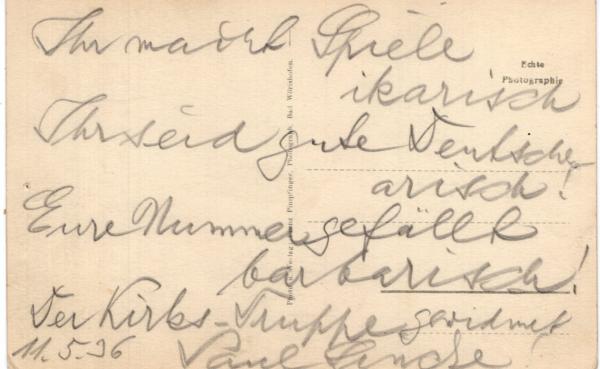 Ihr macht Spiele
ikarisch
Ihr seid gute Deutsche,
arisch!
Eure Nummer gefällt
barbarisch!
Der Kirks-Truppe gewidmet
11.5.36 Paul Lincke
Echte
Photographie
Pumpfinger, Photograph, Bad Wörishofen.